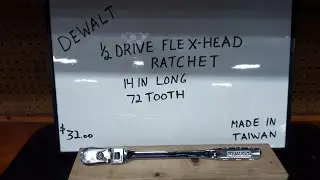 DEWALT
1/2 DRIVE FLEX-HEAD
RATCHET
14 IN LONG
72 TOOTH
$32.00
MADE IN
TAIWAN